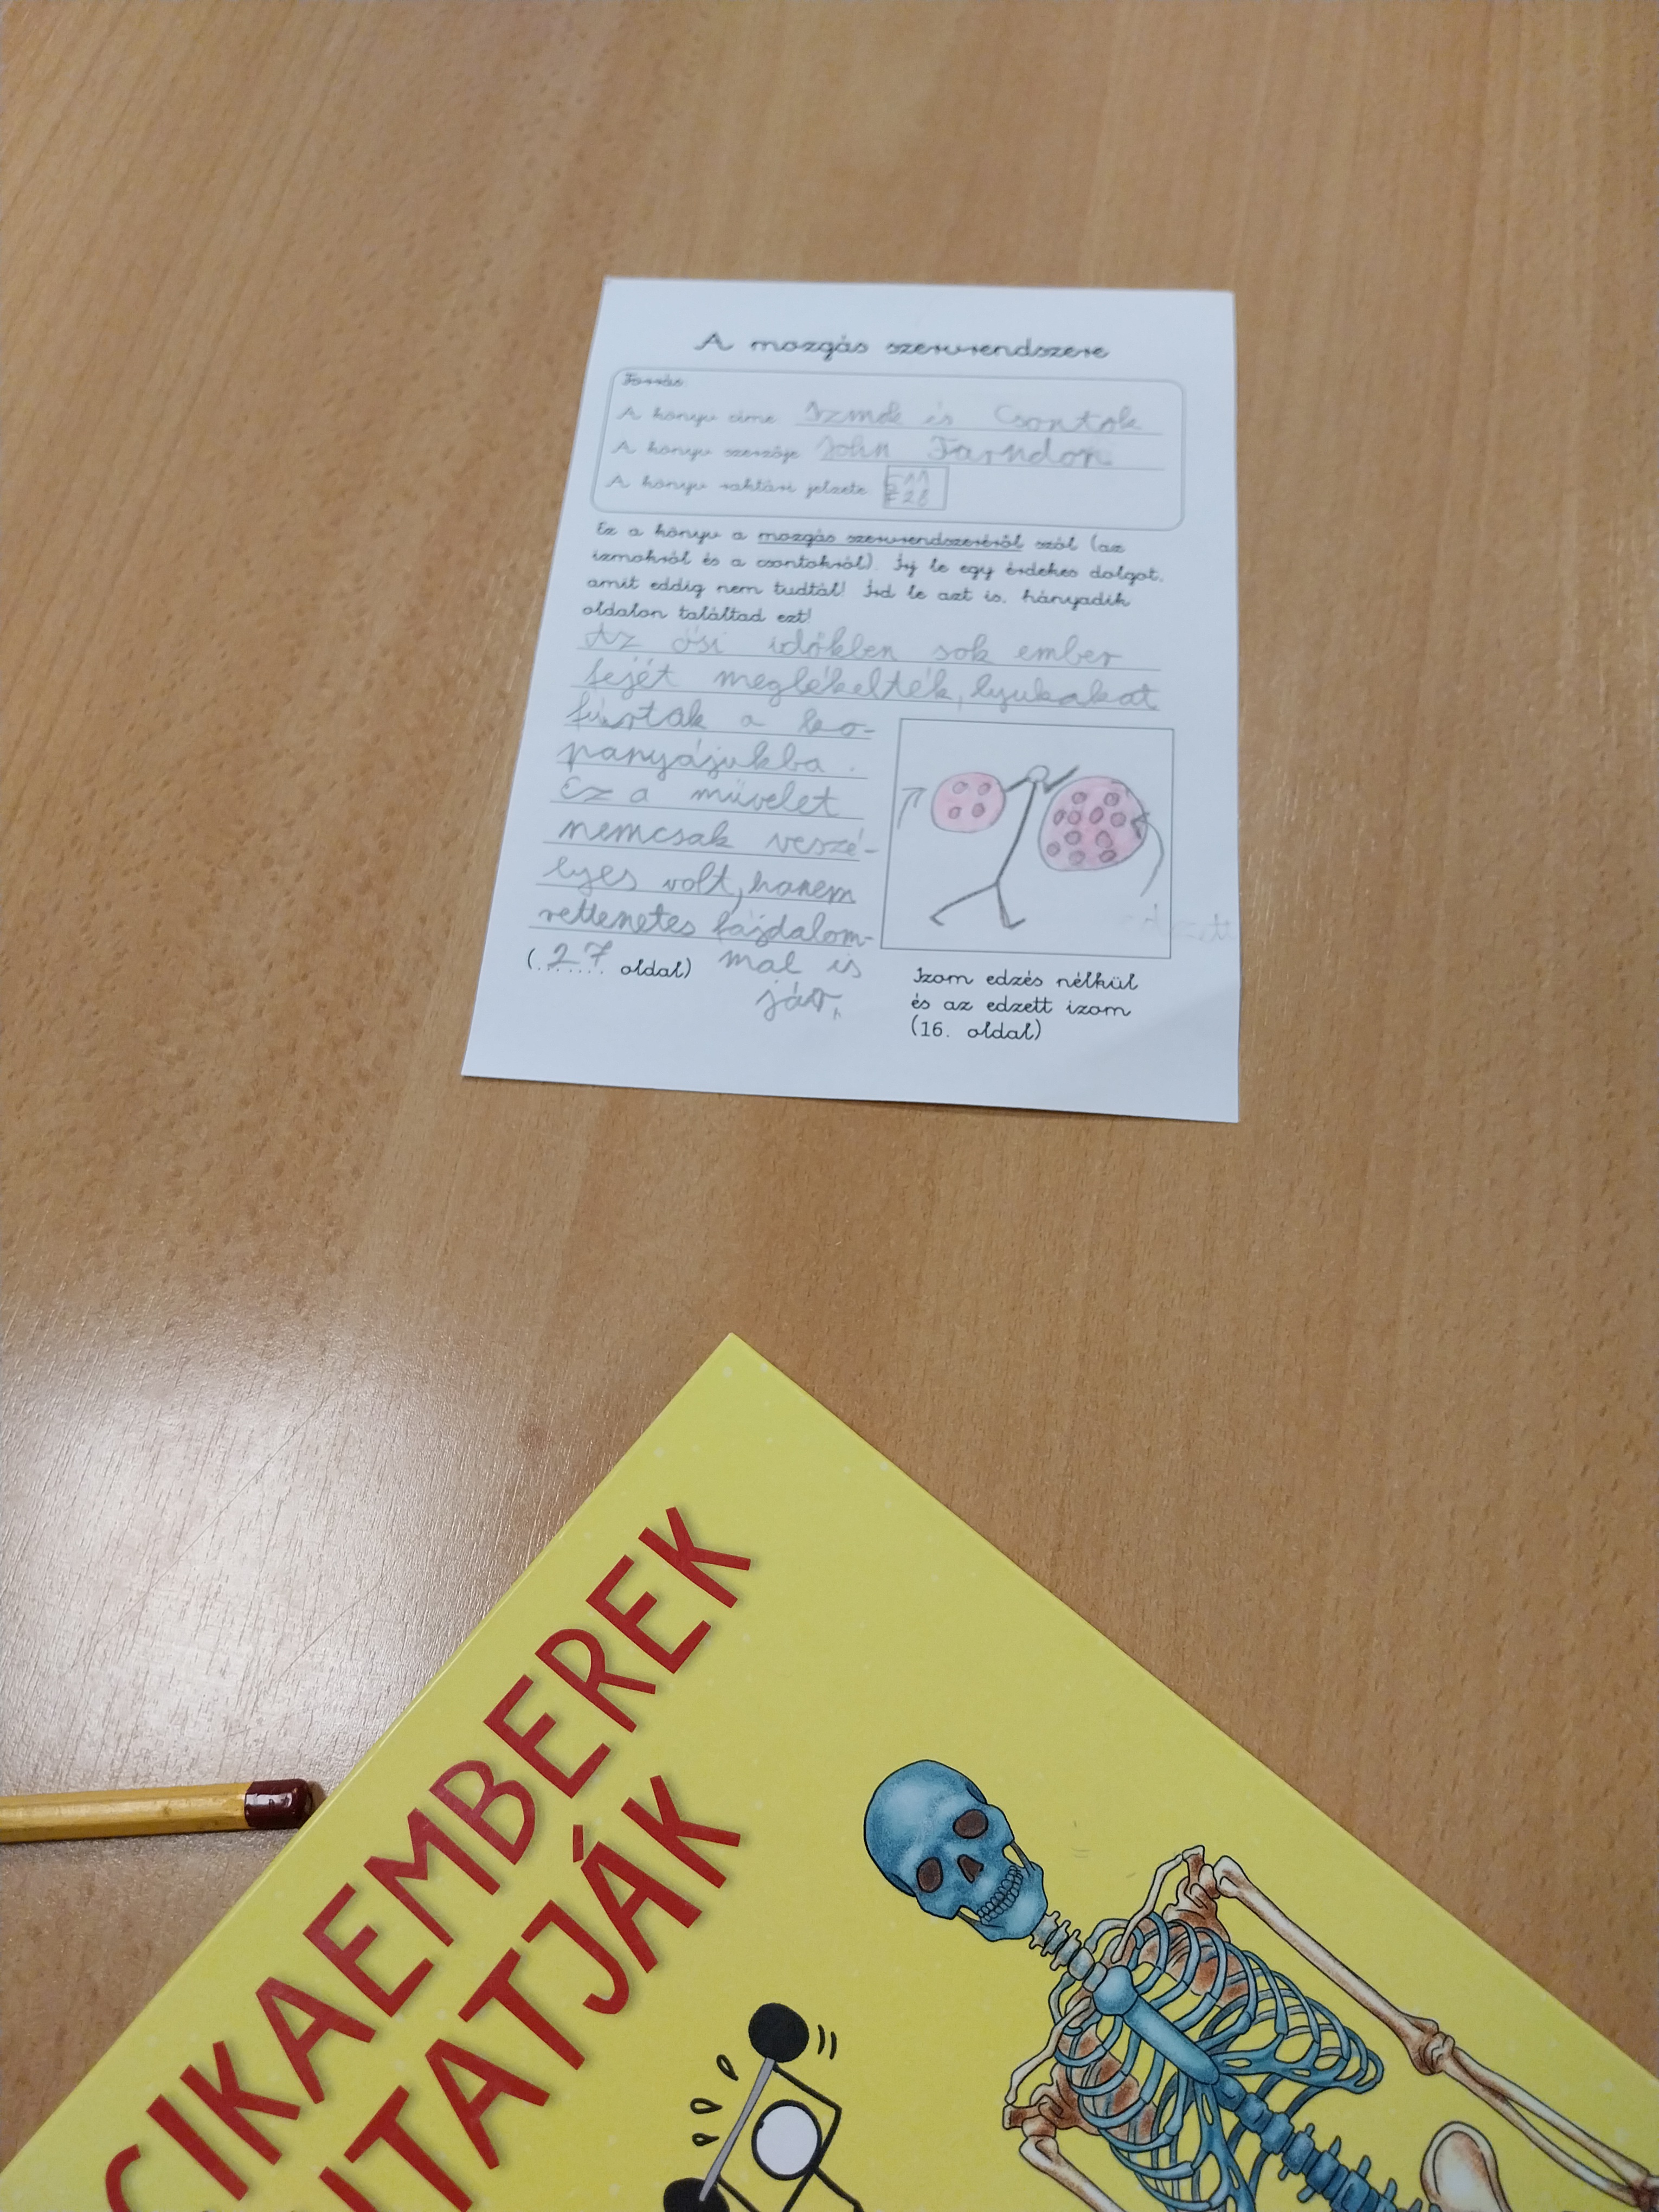 A mozgás szervrendszere
Forrás
A könyv címe Izmok és Csontok
A könyv szerzője John Farndon
A könyv raktári jelzete
F 28
Ez a könyv a mozgás szervrendszeréről szól (az
izmokról és a csontokról). Írj le egy érdekes dolgot,
amit eddig nem tudtál! Írd le azt is, hányadik
oldalon találtad ezt!
Az ősi időkben sok ember
fejét meglékelték, lyukakat
fúrtak a ko-
panyájukba.
Ez a művelet
nemcsak veszé-
lyes volt, hanem
rettenetes fájdalom-
(27 oldal) mal is
járt.
Izom edzés nélkül
és az edzett izom
(16. oldal)
CIKAEMBEREK
TATJÁK